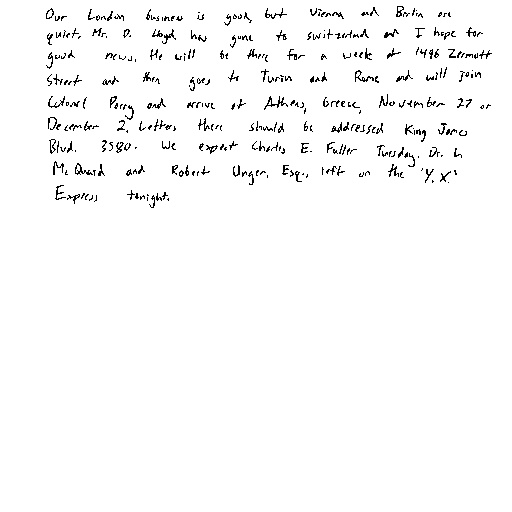 Our London business is good, but Vienna and Berlin are
quiet. Mr. D. Lloyd has gone to Switzerland and I hope for
good news. He will be there for a week at 1496 Zermott
Street and then goes to Turin and Rome and will join
Colonel Parry and arrive at Athens, Greece, November 27 or
December 2. Letters there should be addressed King James
Blvd. 3580. We expect Charles E. Fuller Tuesday. Dr. L
McQuaid and Robert Unger, Esq., left on the "Y.X."
Express tonight.